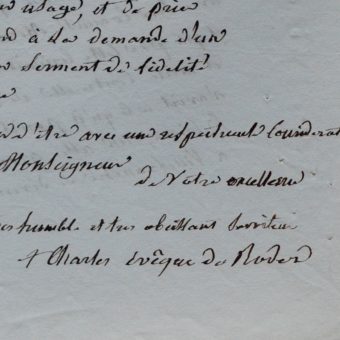 usage, et de prie
à la demande d'un
serment de fidelité
d'être avec un respectueuse Considerat
Monseigneur
de Votre excellence
humble et tres obeissant serviteur
+ Charles Evêque de Rodez